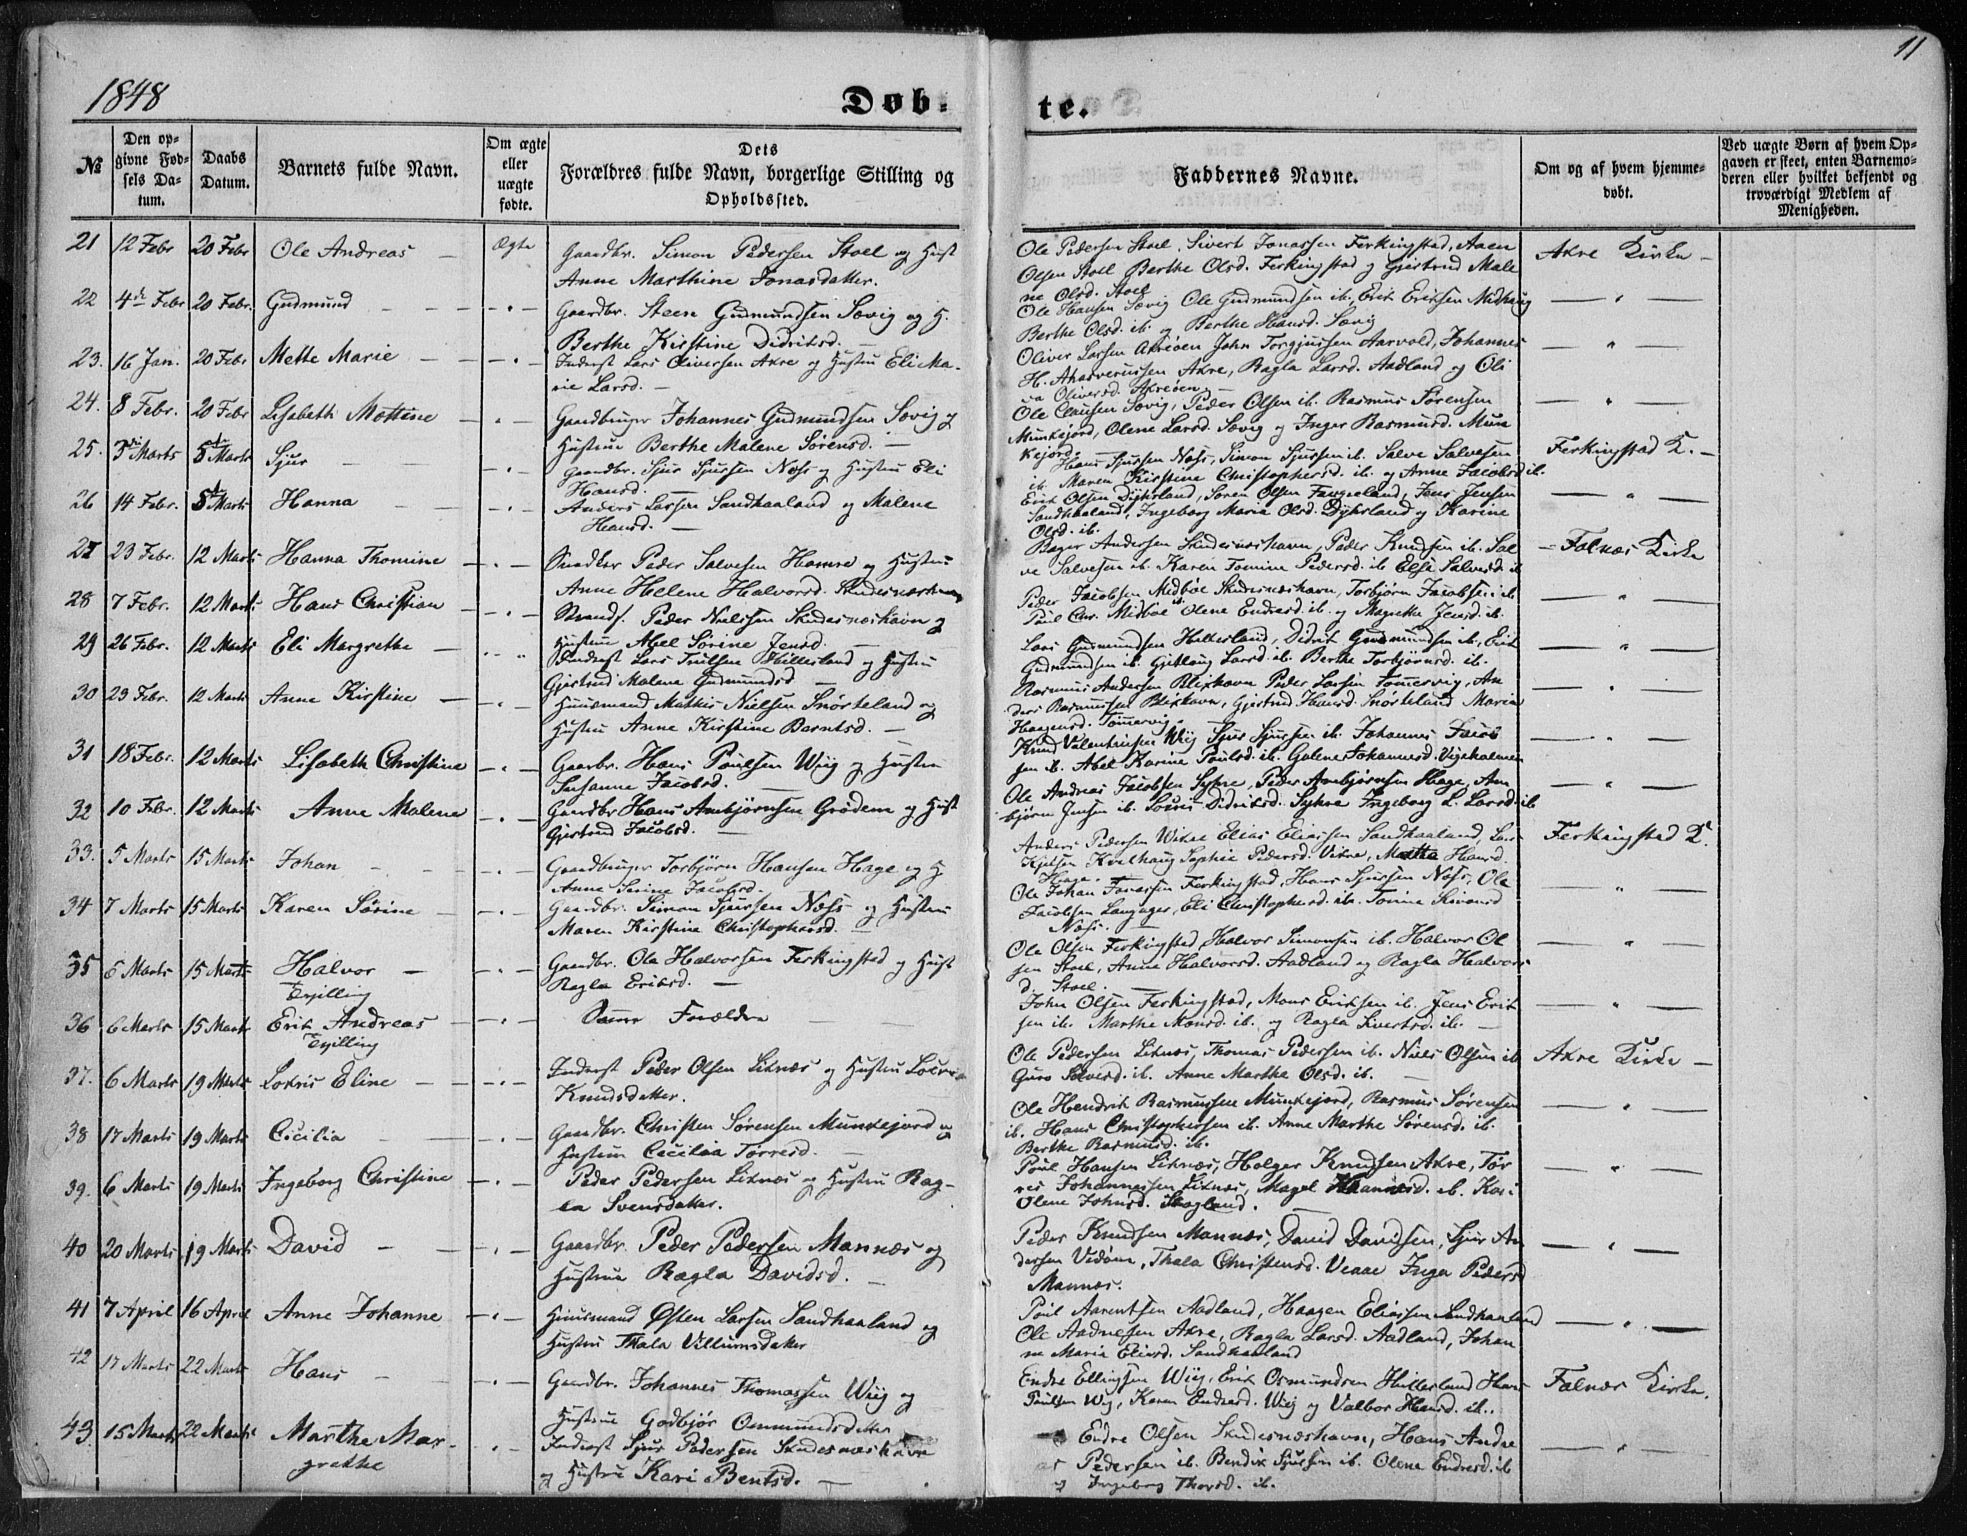 1848
Døb-
te.
11
№
Den op-
givne Fød-
sels Da-
tum.
Daabs
Datum.
Barnets fulde Navn.
Om ægte
eller
uægte
fødte.
Dets
Forældres fulde Navn, borgerlige Stilling og
Opholdssted.
Faddernes Navne.
Om og af hvem hjemme-
døbt.
Ved uægte Børn af hvem Op-
gaven er skeet, enten Barnemo-
deren eller hvilket bekjendt og
troværdigt Medlem af
Menigheden.
21 12 Febr 20 Febr Ole Andreas Ægte Gaardbr. Simon Pedersen Stoel og Hust
Anne Marthine Jonasdatter.
Ole Pedersen Stoel, Sivert Jonassen Ferkingstad, Aaen
Olsen Stoel Berthe Olsd. Ferkingstad og Gjertrud Male
ne Olsd. Stoel
Akre Kirke
22 4de Febr 20 Febr. Gudmund Gaardbr. Steen Gudmundsen Sævig og H.
Berthe Kirstine Didriksd.
Ole Hansen Sævig Ole Gudmundsen ib. Erik Eriksen Midhaug
Berthe Olsd. ib. og Berthe Hansd. Sævig
23. 16 Jan. 20 Febr Mette Marie Inderst Lars Oliversen Akre og Hustru Eli Ma-
rie Larsd.
Oliver Larsen Akreøen John Torgjussen Aarvold, Johannes
H. Ahasverussen Akre, Ragla Larsd. Aadland og Oli
va Oliversd. Akreøen
24. 8 Febr. 20 Febr Lisabeth Mattine Gaardbruger Johannes Gudmundsen Sævig og
Hustrue Berthe Malene Sørensd.
Ole Clausen Sævig, Peder Olsen ib. Rasmus Sørensen
Munkejord, Olene Larsd. Sævig og Inger Rasmusd. Mun
kejord.
25. 3die Marts 5te Marts Sjur Gaardbr. Sjur Sjursen Næss og Hustru Eli
Hansd.
Hans Sjursen Næss, Simon Sjursen ib. Salve Salvesen
ib. Maren Kirstine Christophersd. ib. og Anne Jacobsd ib.
Ferkingstad K.
26 14 Febr. 5te Marts Hanna Anders Larsen Sandhaaland og Malene
Hansd.
Erik Olsen Dyhrland, Søren Olsen Faugeland, Jens Jensen
Sandhaaland, Ingeborg Maria Olsd. Dyhrland og Karine
Olsd. ib.
27 23 Febr. 12 Marts Hanna Thomine Snedker Peder Salvesen Hamre og Hustru
Anne Helene Halvorsd. Skudesnæshavn
Børger Andersen Skudesnæshavn, Peder Knudsen ib. Sal
ve Salvesen ib. Karen Tomine Pedersd. ib Elsi Salvesd. ib
Falnæs Kirke
28 7 Febr. 12 Marts Hans Christian Strands. Peder Nielsen Skudesnæshavn og
Hustrue Abel Sørine Jensd.
Peder Jacobsen Midbøe Skudesnæshavn, Torbjørn Jacobsen ib.
Poul Chr. Midbøe ib Olene Endresd. ib. og Magrethe Jensd. ib.
29 26 Febr. 12 Marts Eli Margrethe Inderst Lars Truelsen Hillesland og Hustru
Gjertrud Malene Gudmundsd
Lars Gudmundsen Hillesland, Didrik Gudmundsen ib., Erik
Gudmundsen ib. Gjitlaug Larsd. ib. Berthe Torbjørnsd. ib.
30 23 Febr. 12 Marts Anne Kirstine Huusmand Mathis Nielsen Snørteland og
Hustru Anne Kirstine Berntsd.
Rasmus Andersen Blixhavn Peder Larsen Tømmervig, An
ders Rasmussen Blixhavn, Gjertrud Hansd. Snørteland Maria
Haagensd. Tømmervig.
31 18 Febr. 12 Marts Lisabeth Christine Gaarbr. Hans Poulsen Wiig og Hustru
Susanne Jacobsd.
Knud Valentinsen Wiig Sjur Sjursen ib. Johannes Jacob
sen ib. Abel Karine Poulsd. ib. Galene Johannesd. Vigeholmen
32 10 Febr. 12 Marts Anne Malene Gaardbr Hans Ambjørnsen Grødem og Hust
Gjertrud Jacobsd.
Ole Andreas Jacobsen Syhre, Peder Ambjørnsen Hage, Am
bjørn Jensen ib. Lovris Didriksd. Syhre Ingeborg L. Larsd. ib
33. 5 Marts 15 Marts Johan Gaardbruger Torbjørn Hansen Hage og H
Anne Serine Jacobsd.
Anders Pedersen Wikre Elias Eliassen Sandhaaland, Lars
Kjelsen Kvalhaug Sophie Pedersd. Vikre, Marthe Hansd.
Hage.
Ferkingstad K.
34 7 Marts 15 Marts Karen Sørine Gaardbr. Simon Sjursen Næss og Hustru
Maren Kirstine Christophersd.
Ole Johan Jonassen Ferkingstad, Hans Sjursen Næss, Ole
Jacobsen Langager, Eli Christophersd. ib. Tomine Simonsd
Næss.
35 6 Marts 15 Marts Halvor
Tvilling
Gaardbr. Ole Halvorsen Ferkingstad og Hust
Ragla Eriksd.
Ole Olsen Ferkingstad, Halvor Simonsen ib. Halvor Ol
sen Stoel, Anne Halvorsd. Aadland og Ragla Halvors
d. Stoel.
36 6 Marts 15 Marts Erik Andreas
Tvilling
Samme Forældre
John Olsen Ferkingstad, Mons Eriksen ib. Jens Erik
sen ib. Marthe Monsd. ib. og Ragla Sivertsd. ib.
37. 6 Marts 19 Marts Lovris Eline Inderst Peder Olsen Liknæs og Hustru Lovris
Knudsdatter.
Ole Pedersen Liknæs, Thomas Pedersen ib. Niels Olsen ib
Guro Salvesd. ib. Anne Marthe Olsd. ib.
Akre Kirke
38 17 Marts 19 Marts Cicilia Gaardbr. Christen Sørensen Munkejord og
Hustrue Cecilia Tørresd.
Ole Hendrik Rasmussen Munkejord, Rasmus Sørensen
ib. Hans Christophersen ib. Anne Marthe Sørensd. ib.
Berthe Rasmusd. ib.
39. 6 Marts 19 Marts Ingeborg Christine Peder Pedersen Liknæs og Hustru Rag-
la Svensdatter.
Poul Hansen Liknæs, Holger Knudsen Akre, Tør
res Johannessen Liknæs, Magel Hansd. ib. Kari
Olene Johnsd. Skogland.
40 20 Marts 19 Marts David Gaardbr. Peder Pedersen Mannæs og
Hustrue Ragla Davidsd.
Peder Knudsen Mannæs, David Davidsen, Sjur An
dersen Vedøen, Thala Christensd. Veaae Inger Pedersd
Mannæs.
41 7 April 16 April Anne Johanne Huusmand Østen Larsen Sandhaaland og
Hustru Thala Villumsdatter
Poul Aarentsen Aadland, Haagen Eliassen Sandhaaland
Ole Aadnesen Akre, Ragla Larsd. Aadland, Johan
ne Maria Eliasd. Sandhaaland
42 17 Marts 22 Marts Hans Gaardbr. Johannes Thomassen Wiig og
Hustrue Godbjør Ommundsdatter
Endre Ellingsen Wiig, Erik Osmundsen Hillesland Hans
Poulsen Wiig, Karen Endresd. Wiig og Valbor Hansd. ib.
Falnæs Kirke.
43. 15 Marts 22 Marts Marthe Mar-
grethe
Inderst Sjur Pedersen Skudesnæshavn
og Hustru Kari Bentsd.
Endre Olsen Skudesnæshavn, Hans Andre
as Pedersen ib. Bendix Sjursen ib. Olene Endresd. ib
og Ingeborg Thorsd. ib.